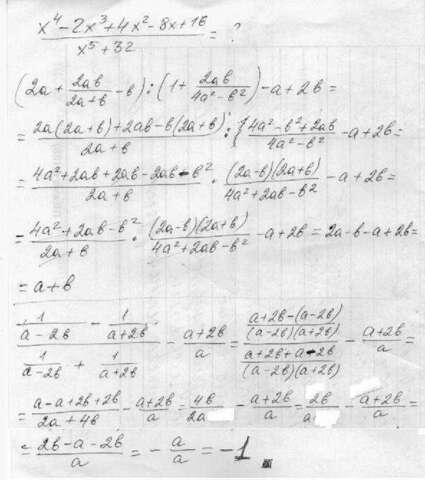 (x⁴-2x³+4x²-8x+16)/(x⁵+32) = ?
(2a + 2ab/(2a+b) - b) : (1 + 2ab/(4a²-b²)) - a+2b =
= (2a(2a+b)+2ab-b(2a+b))/(2a+b) : (4a²-b²+2ab)/(4a²-b²) - a+2b =
= (4a²+2ab+2ab-2ab-b²)/(2a+b) · ((2a-b)(2a+b))/(4a²+2ab-b²) - a+2b =
= (4a²+2ab-b²)/(2a+b) · ((2a-b)(2a+b))/(4a²+2ab-b²) - a+2b = 2a-b-a+2b =
= a+b
(1/(a-2b) - 1/(a+2b))/(1/(a-2b) + 1/(a+2b)) - (a+2b)/a = ((a+2b-(a-2b))/((a-2b)(a+2b)))/((a+2b+a-2b)/((a-2b)(a+2b))) - (a+2b)/a =
= (a-a+2b+2b)/(2a+4b) - (a+2b)/a = 4b/2a - (a+2b)/a = 2b/a - (a+2b)/a =
= (2b-a-2b)/a = - a/a = -1